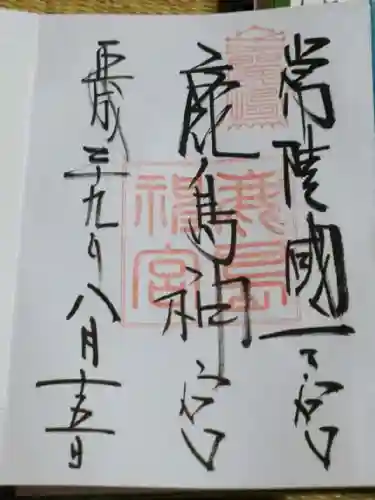 常陸國一之宮
鹿島神宮
平成二十九年八月十五日
鹿島
神宮